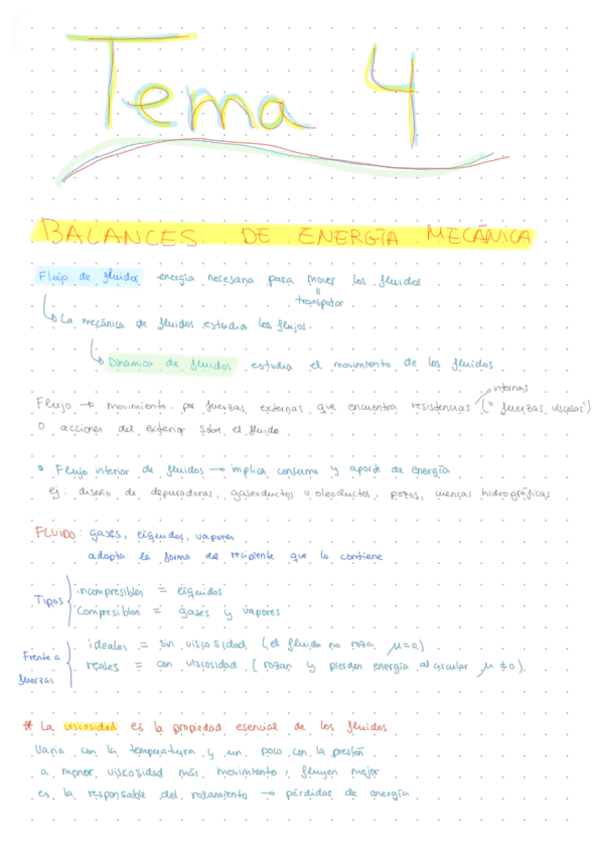 Tema 4
BALANCES DE ENERGÍA MECÁNICA
Flujo de fluidos energía necesaria para mover los fluidos
"
transportar
La mecánica de fluidos estudia los flujos.
Dinámica de fluidos estudia el movimiento de los fluidos
internas
Flujo → movimiento, por fuerzas externas que encuentra resistencias (" fuerzas viscosas")
o acciones del exterior sobre el fluido
• Flujo interior de fluidos → implica consumo y aporte de energía
ej: diseño de depuradoras, gaseoductos u oleoductos, pozos, cuencas hidrográficas
FLUIDO: gases, líquidos, vapores
adopta la forma del recipiente que lo contiene
Tipos
incompresibles = líquidos
compresibles = gases y vapores
Frente a fuerzas
ideales = sin viscosidad (el fluido no roza, μ=0)
reales = con viscosidad (rozan y pierden energía al circular μ ≠ 0).
* La viscosidad es la propiedad esencial de los fluidos
varía con la temperatura y un poco con la presión
a menor viscosidad más movimiento, fluyen mejor
es la responsable del rozamiento → pérdidas de energía